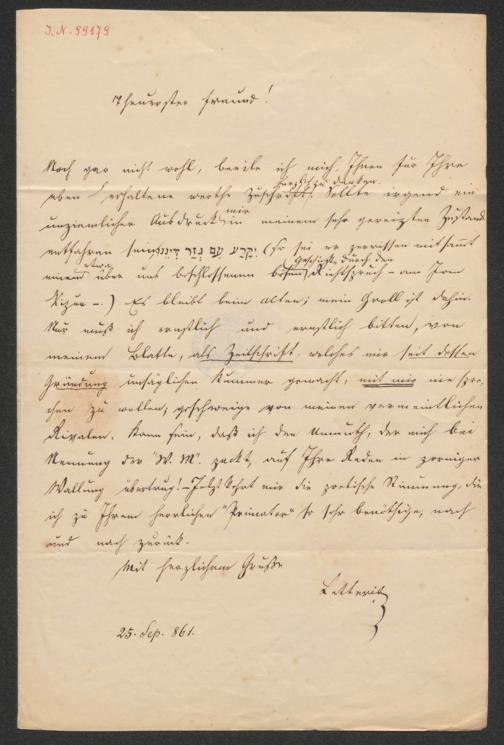 I. N. 99179
Theuerster Freund!
Noch gar nicht wohl, beeile ich mich, Ihnen für Ihre
herzlich zu danken.
eben erhaltene werthe Zuschrift. Sollte irgend ein
unziemlicher Ausdruck mir in meinem sehr gereizten Zustand
entfahren sein, יִקְרַע עִם גְזַר דִינֵנוּ (so sei er zerrissen mitsamt
etwa Geschicke durch den
einem über uns beschlossenen bösen Richtspruch – am Jom
Kipur –.) Es bleibt beim Alten; mein Groll ist dahin.
Nur muß ich ernstlich und ernstlich bitten, von
meinem Blatte, als Zeitschrift, welches mir seit dessen
Gründung unsäglichen Kummer gemacht, mit mir nie spre-
chen zu wollen; geschweige von meinen vermeintlichen
Rivalen. Kann sein, daß ich den Unmuth, der mich bei
Nennung der "W. M." packt, auf Ihre Reden in zorniger
Wallung übertrug! – Jetzt kehrt mir die poetische Stimmung, die
ich zu Ihrem herrlichen "Primator" so sehr benöthige, nach
und nach zurück.
Mit herzlichem Gruße
Letteris
25. Sep. 861.